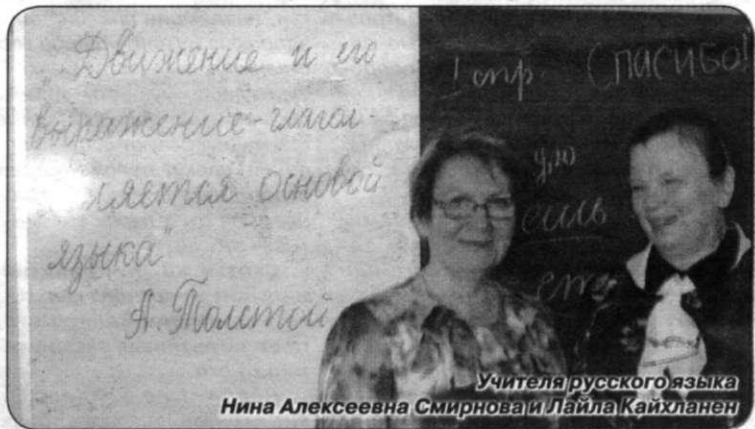 „Движение и его
выражение-глагол-
является основой
языка"
А. Толстой
I спр. СПАСИБО!
ую
ешь
ете
Учителя русского языка
Нина Алексеевна Смирнова и Лайла Кайхланен